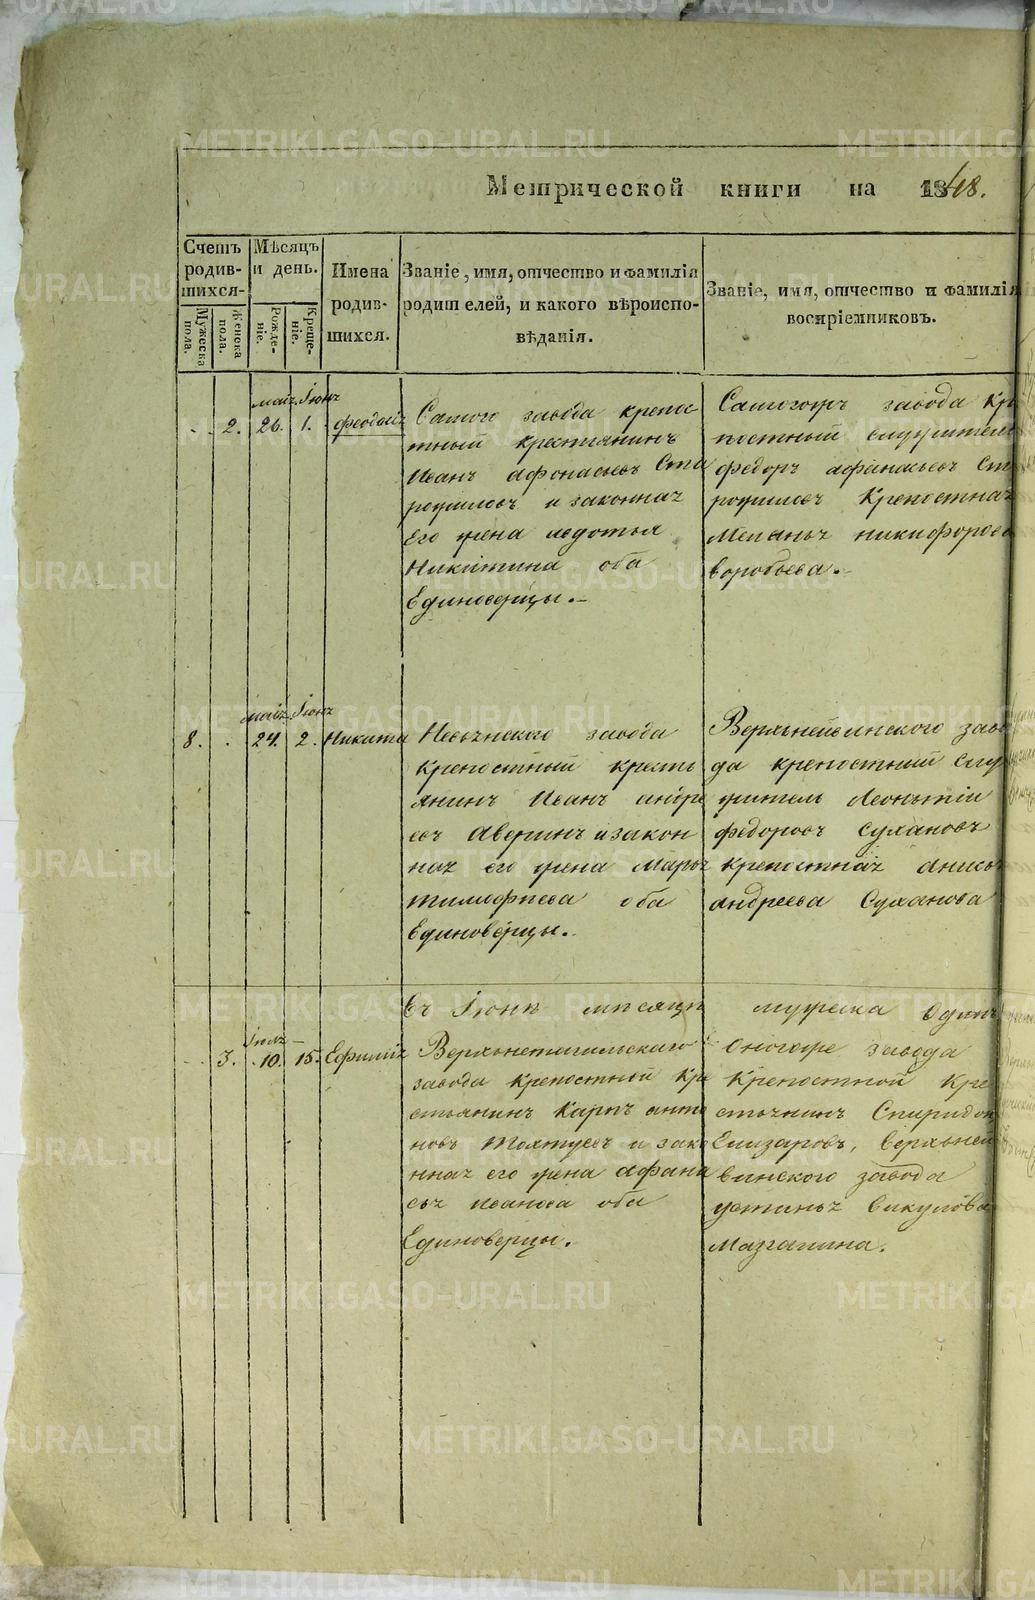 Метрической книги на 1848.
Счетъ родив-шихся.
Мужеска пола.
Женска пола.
Мѣсяцъ и день.
Рожде-ніе.
Креще-ніе.
Имена родив-шихся.
Званіе, имя, отчество и фамилія
родителей, и какого вѣроиспо-
вѣданія.
Званіе, имя, отчество и фамилія
воспріемниковъ.
2.
маія 26.
Іюня 1.
феодоси
Самого завода крепос
тный крестиянинъ
Иванъ афонасьевъ Ста
рожиловъ и законная
его жена
Никитина оба
Единоверцы.
Самогожъ завода Кре
постный служитель
федоръ афанасьевъ Ста
рожиловъ Крепостная
Меланья никифорова
воробьева.
8.
маія 24.
Іюня 2.
Никита
Невьянского завода
Крепостный крестьи
янинъ Иванъ андре
евъ Аверинъ и закон
ная его жена Марья
тимофиева оба
Единоверцы.
Верхьнейвинского заво
да крепостный слу
житель Леоньтіи
федоровъ Сухановъ
крепостная анисья
андреева Суханова
въ Іюнѣ мѣсяцѣ мужеска один
3.
10.
15.
Ефимия
Верхьнетагильскаго
завода Крепостной Кре
стьянинъ Карпъ анто
новъ и зако
нная его жена афана
сья иванова оба
Единоверцы.
Оногоже завода
Крепостной Кре
стьянинъ Спиридон
Елизаровъ, верхьней
винского завода
устинья викулова
Мазганина.
METRIKI.GASO-URAL.RU